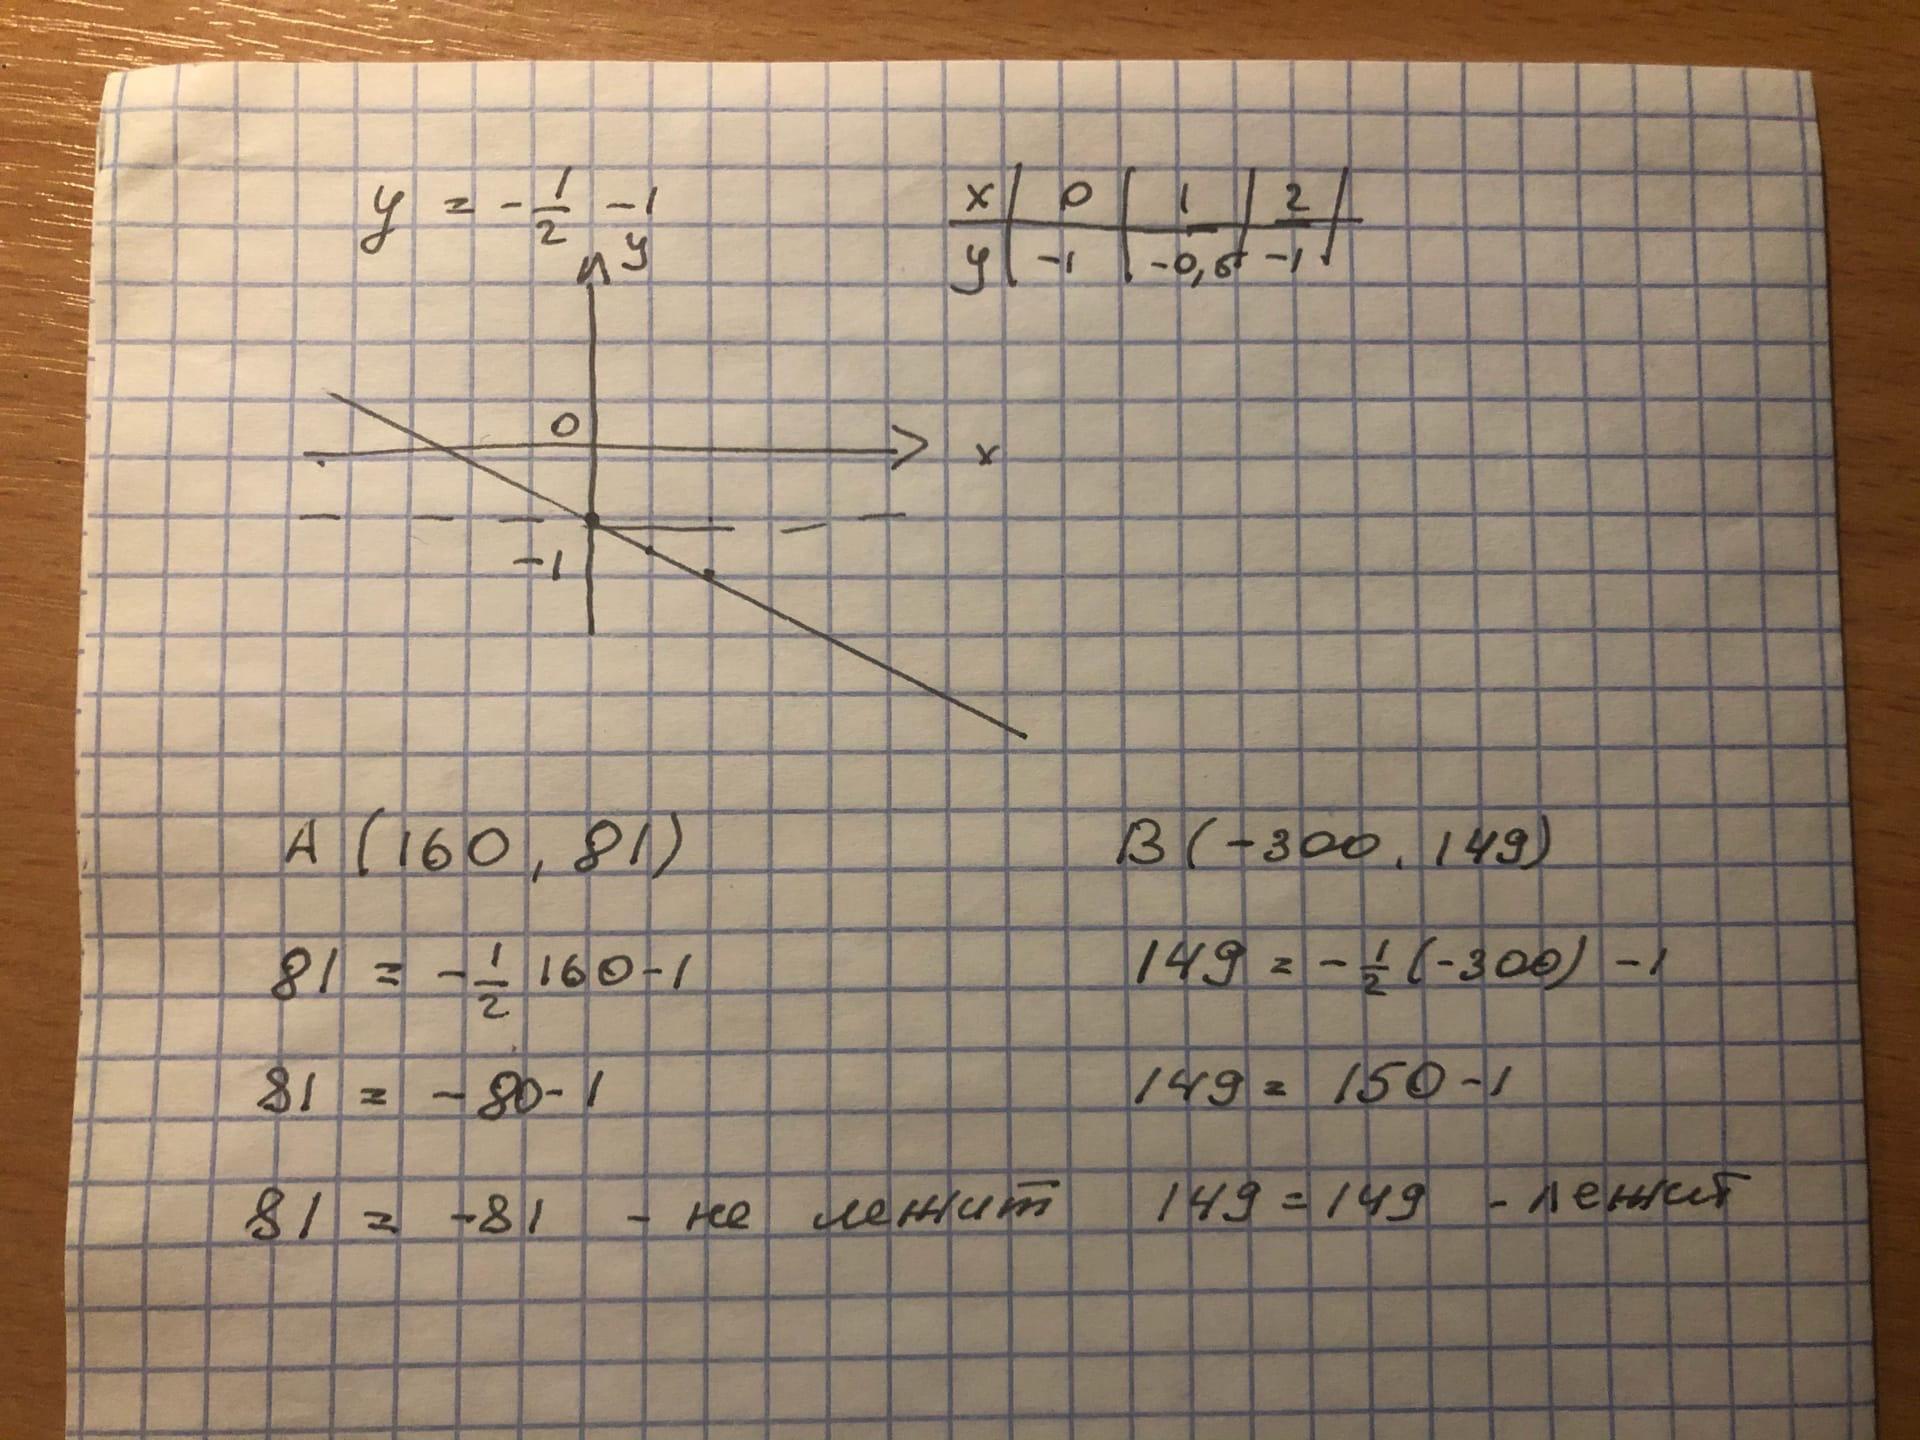 y = -1/2 -1
x | 0 | 1 | 2 |
y | -1 | -0,5 | -1 |
y
0
x
-1
A (160, 81)
B (-300, 149)
81 = -1/2 160-1
149 = -1/2 (-300) -1
81 = -80-1
149 = 150-1
81 = -81 - не лежит
149 = 149 - лежит